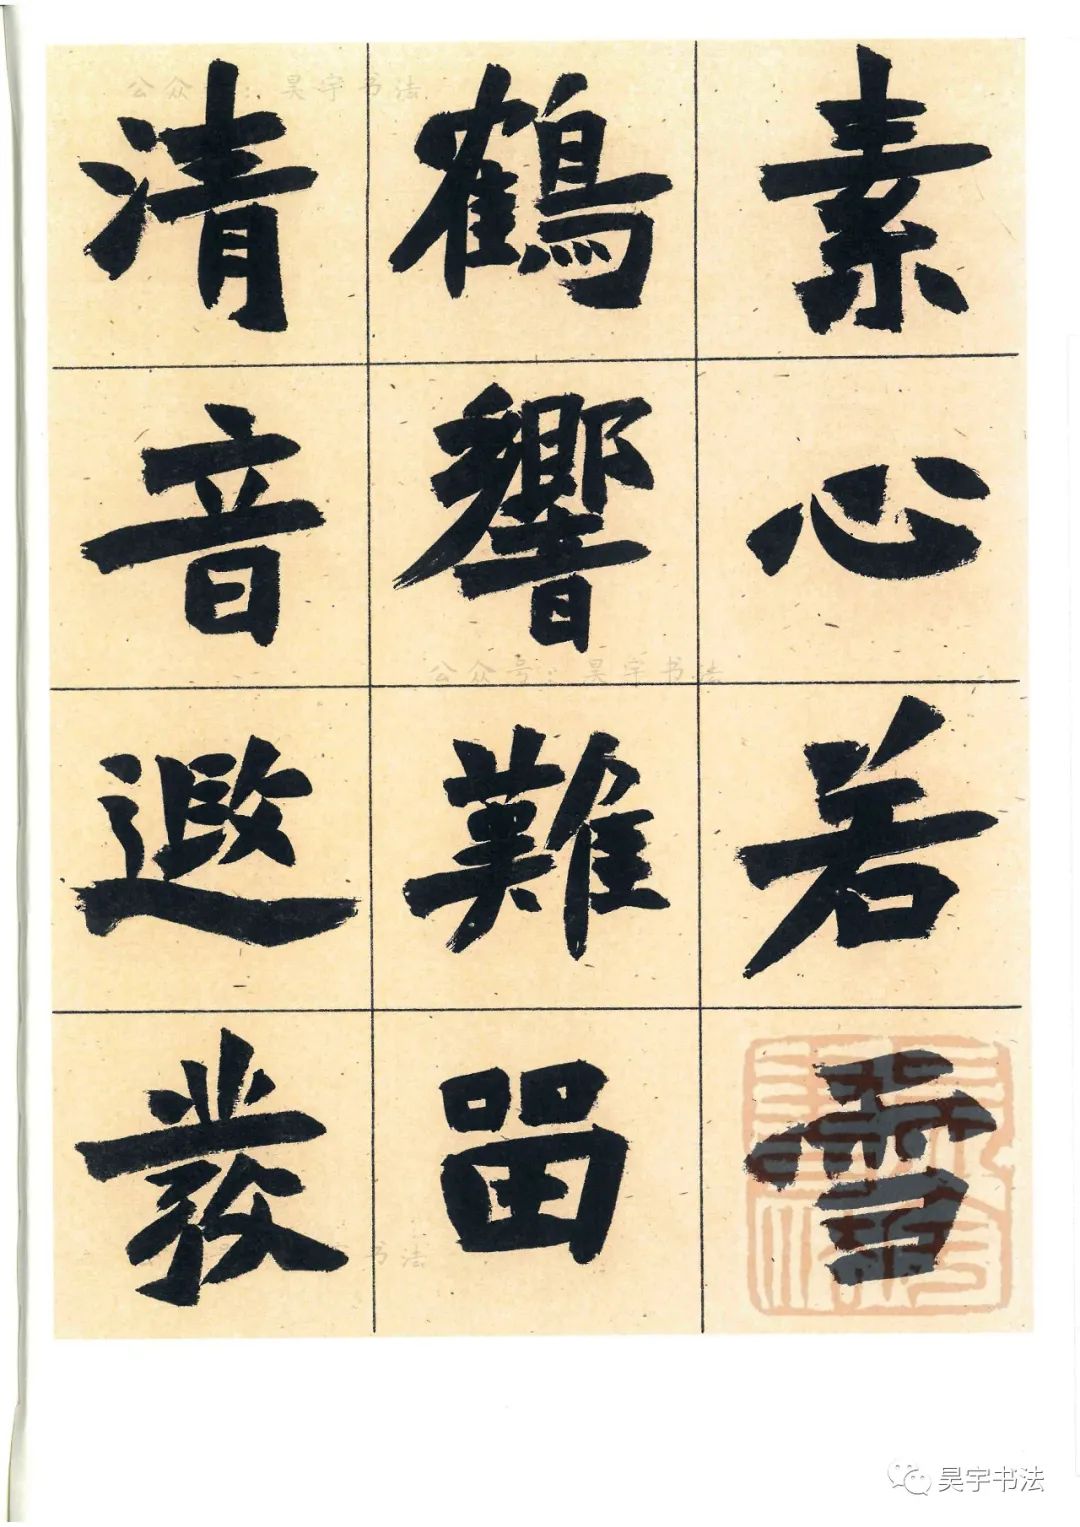 素心若雪
鶴響難留
清音遐發
公众号：昊宇书法
公众号：昊宇书法
书法
昊宇书法